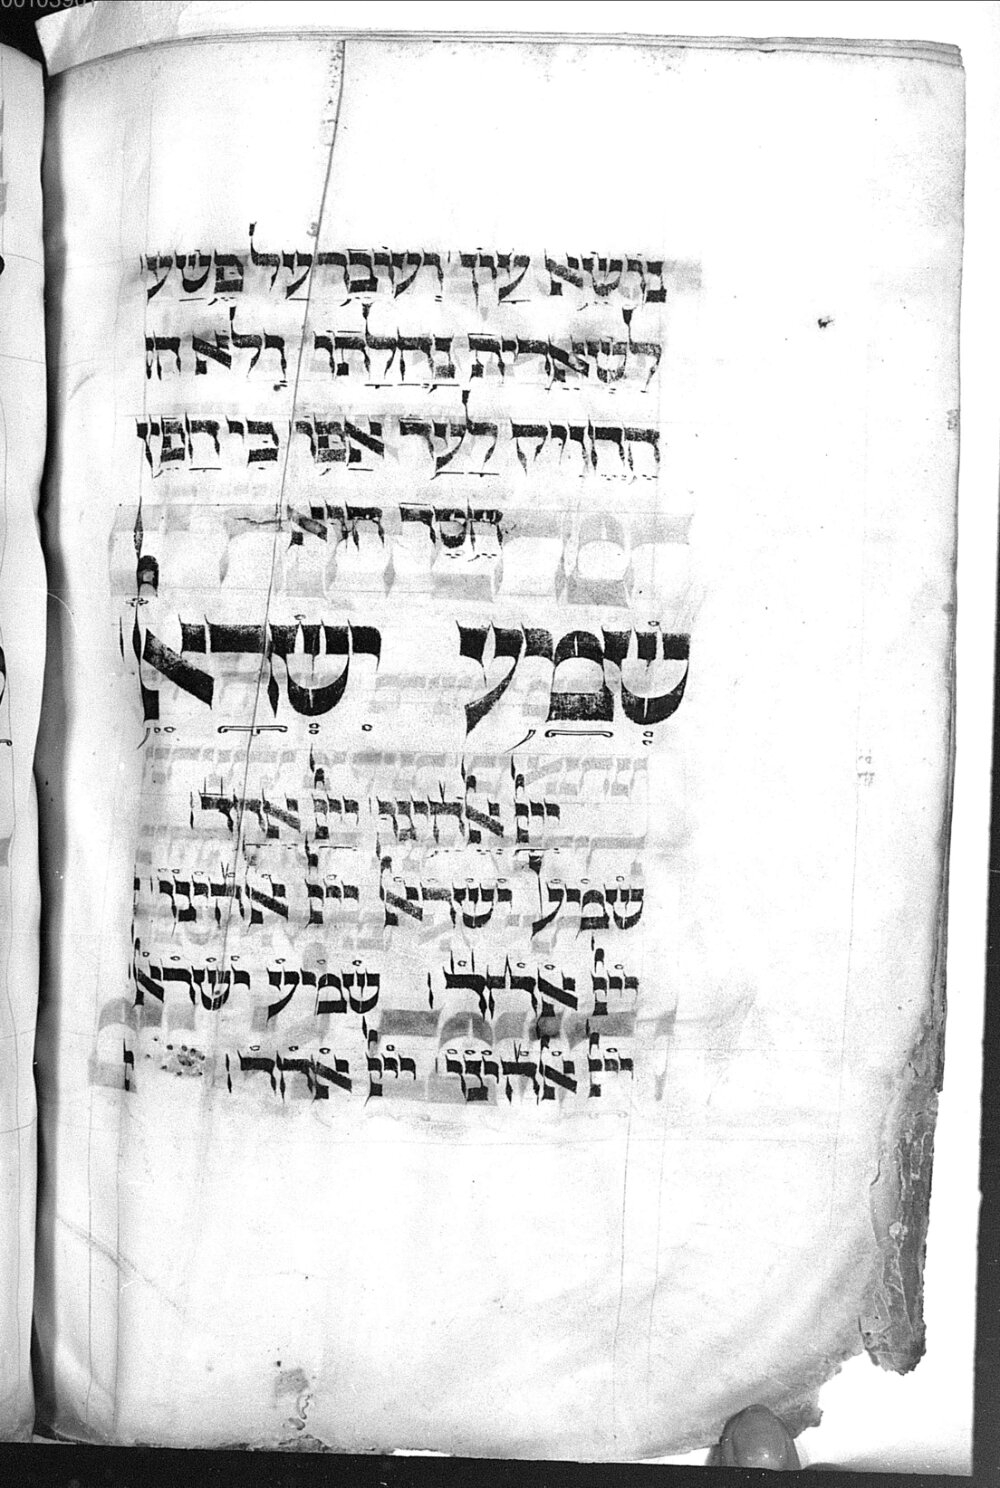 נושא עון ועובר על פשע
לשארית נחלתו ולא הח
החזיק לעד אפו כי חפץ
חסד הוא
שמע ישראל
יי אלהינו יי אחד
שמע ישראל יי אלהינו
יי אחד שמע ישראל
יי אלהינו יי אחד